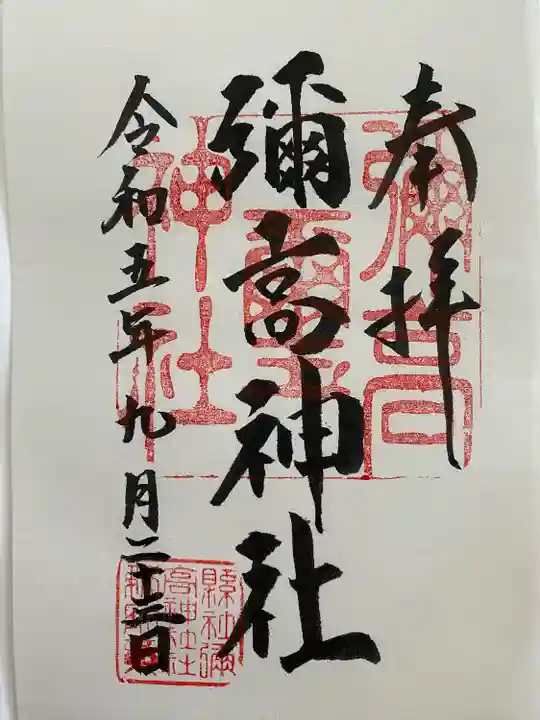 奉拝
彌高神社
令和五年九月二十六日
彌高
神社
縣社彌
高神社社